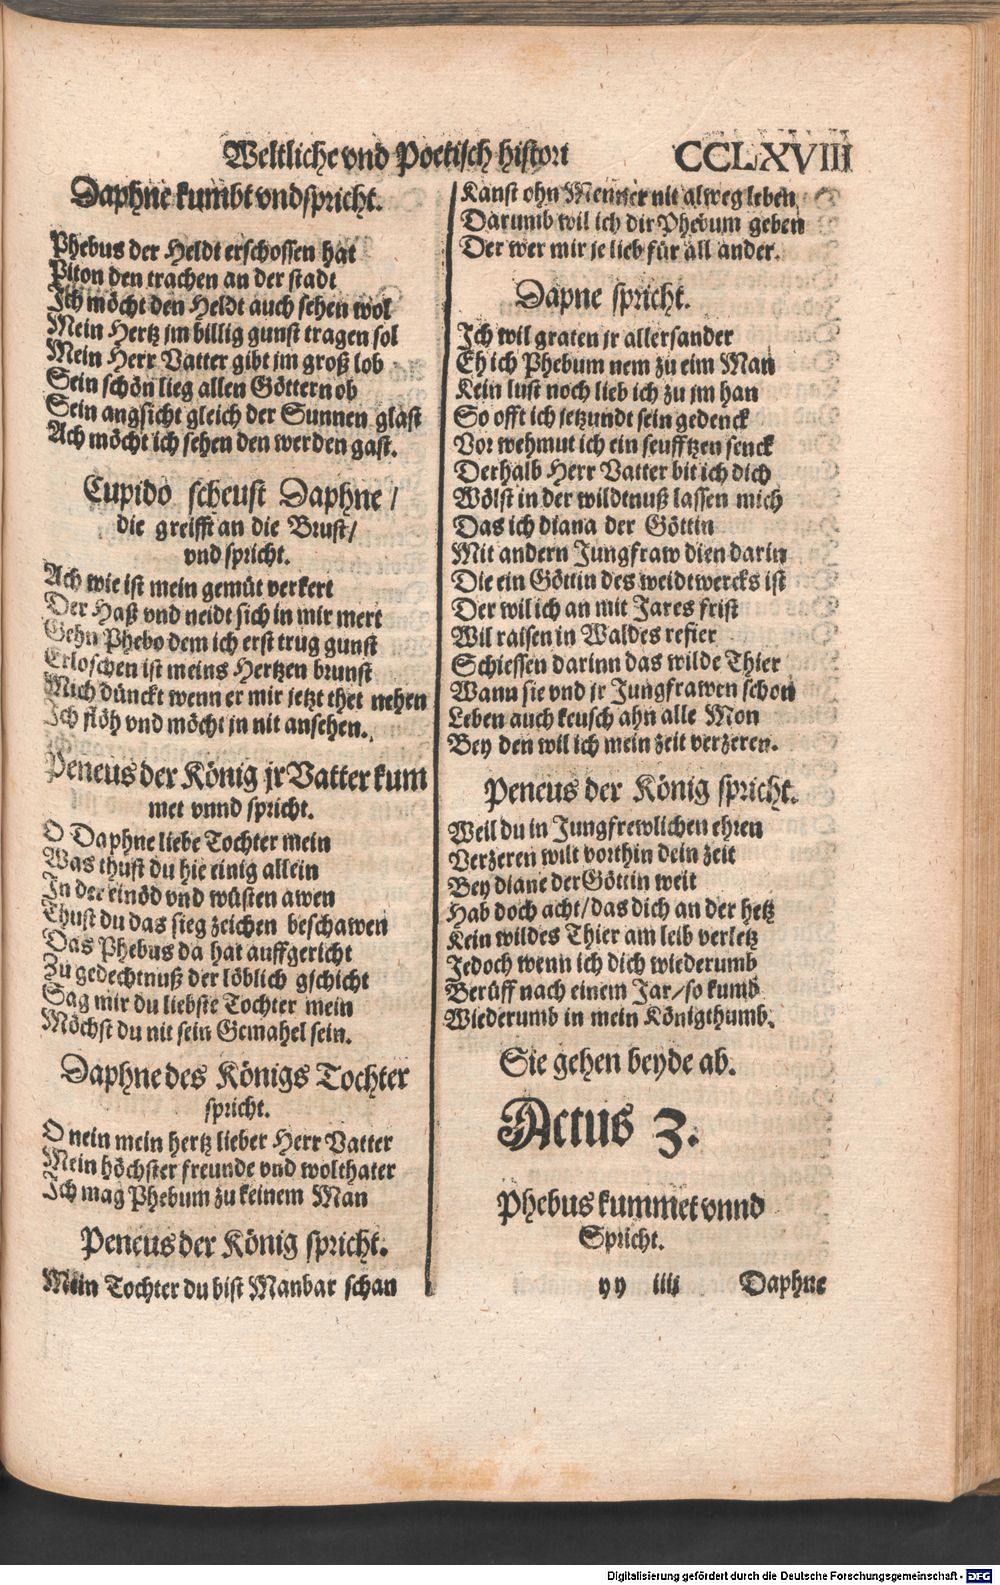 Weltliche vnd Poetisch histori CCLXVIII
Daphne kumbt vnd spricht.
Phebus der Heldt erschossen hat
Piton den trachen an der stadt
Ich möcht den Heldt auch sehen wol
Mein Hertz jm billig gunst tragen sol
Mein Herr Vatter gibt jm groß lob
Sein schön lieg allen Göttern ob
Sein angsicht gleich der Sunnen glast
Ach möcht ich sehen den werden gast.
Cupido scheust Daphne /
die greifft an die Brust /
vnd spricht.
Ach wie ist mein gemüt verkert
Der Haß vnd neidt sich in mir mert
Gehn Phebo dem ich erst trug gunst
Erloschen ist meins Hertzen brunst
Mich dünckt wenn er mir jetzt thet nehen
Ich flöh vnd möcht jn nit ansehen.
Peneus der König jr Vatter kum
met vnnd spricht.
O Daphne liebe Tochter mein
Was thust du hie einig allein
In der einöd vnd wüsten awen
Thust du das sieg zeichen beschawen
Das Phebus da hat auffgericht
Zu gedechtnuß der löblich gschicht
Sag mir du liebste Tochter mein
Möchst du nit sein Gemahel sein.
Daphne des Königs Tochter
spricht.
O nein mein hertz lieber Herr Vatter
Mein höchster freunde vnd wolthater
Ich mag Phebum zu keinem Man
Peneus der König spricht.
Mein Tochter du bist Manbar schan
Kanst ohn Menner nit alweg leben
Darumb wil ich dir Phebum geben
Der wer mir je lieb für all ander.
Dapne spricht.
Ich wil graten jr allersander
Eh ich Phebum nem zu eim Man
Kein lust noch lieb ich zu jm han
So offt ich jetzundt sein gedenck
Vor wehmut ich ein seufftzen senck
Derhalb Herr Vatter bit ich dich
Wölst in der wildtnuß lassen mich
Das ich diana der Göttin
Mit andern Jungfraw dien darin
Die ein Göttin des weidtwercks ist
Der wil ich an mit Jares frist
Wil raisen in Waldes refier
Schiessen darinn das wilde Thier
Wann sie vnd jr Jungfrawen schon
Leben auch keusch ahn alle Mon
Bey den wil ich mein zeit verzeren.
Peneus der König spricht.
Weil du in Jungfrewlichen ehren
Verzeren wilt vorthin dein zeit
Bey diane der Göttin weit
Hab doch acht / das dich an der hetz
Kein wildes Thier am leib verletz
Jedoch wenn ich dich wiederumb
Berüff nach einem Jar / so kumb
Wiederumb in mein Königthumb.
Sie gehen beyde ab.
Actus 3.
Phebus kummet vnnd
Spricht.
yy iiii Daphne
Digitalisierung gefördert durch die Deutsche Forschungsgemeinschaft - DFG